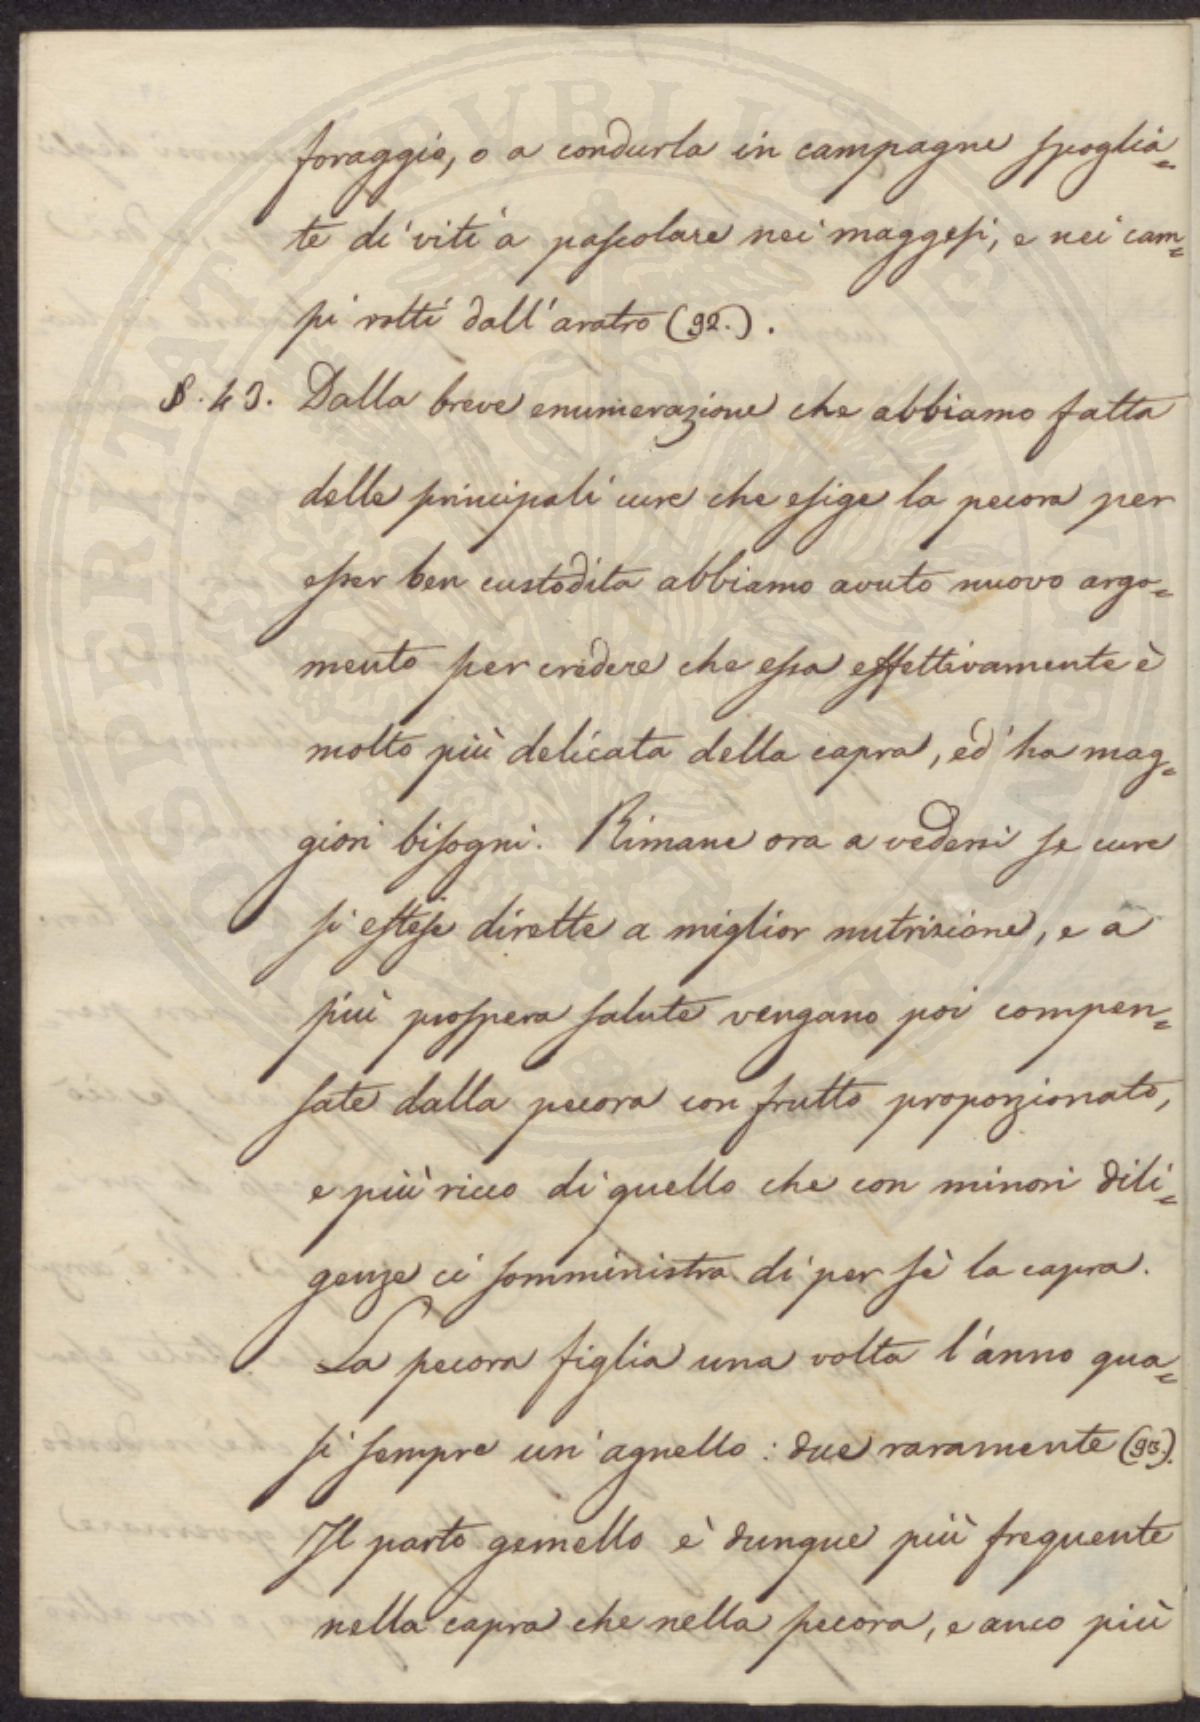 foraggio, o a condurla in campagne spoglia=
te di viti a pascolare nei maggesi, e nei cam=
pi rotti dall'aratro (92.).
§. 43. Dalla breve enumerazione che abbiamo fatta
delle principali cure che esige la pecora per
esser ben custodita abbiamo avuto nuovo argo=
mento per credere che essa effettivamente è
molto più delicata della capra, ed ha mag=
giori bisogni. Rimane ora a vedersi se cure
si estese dirette a miglior nutrizione, e a
più prospera salute vengano poi compen=
sate dalla pecora con frutto proporzionato,
e più ricco di quello che con minori dili=
genze ci somministra di per sè la capra.
La pecora figlia una volta l'anno qua=
si sempre un'agnello: due raramente (93.).
Il parto gemello è dunque più frequente
nella capra che nella pecora, e anco più